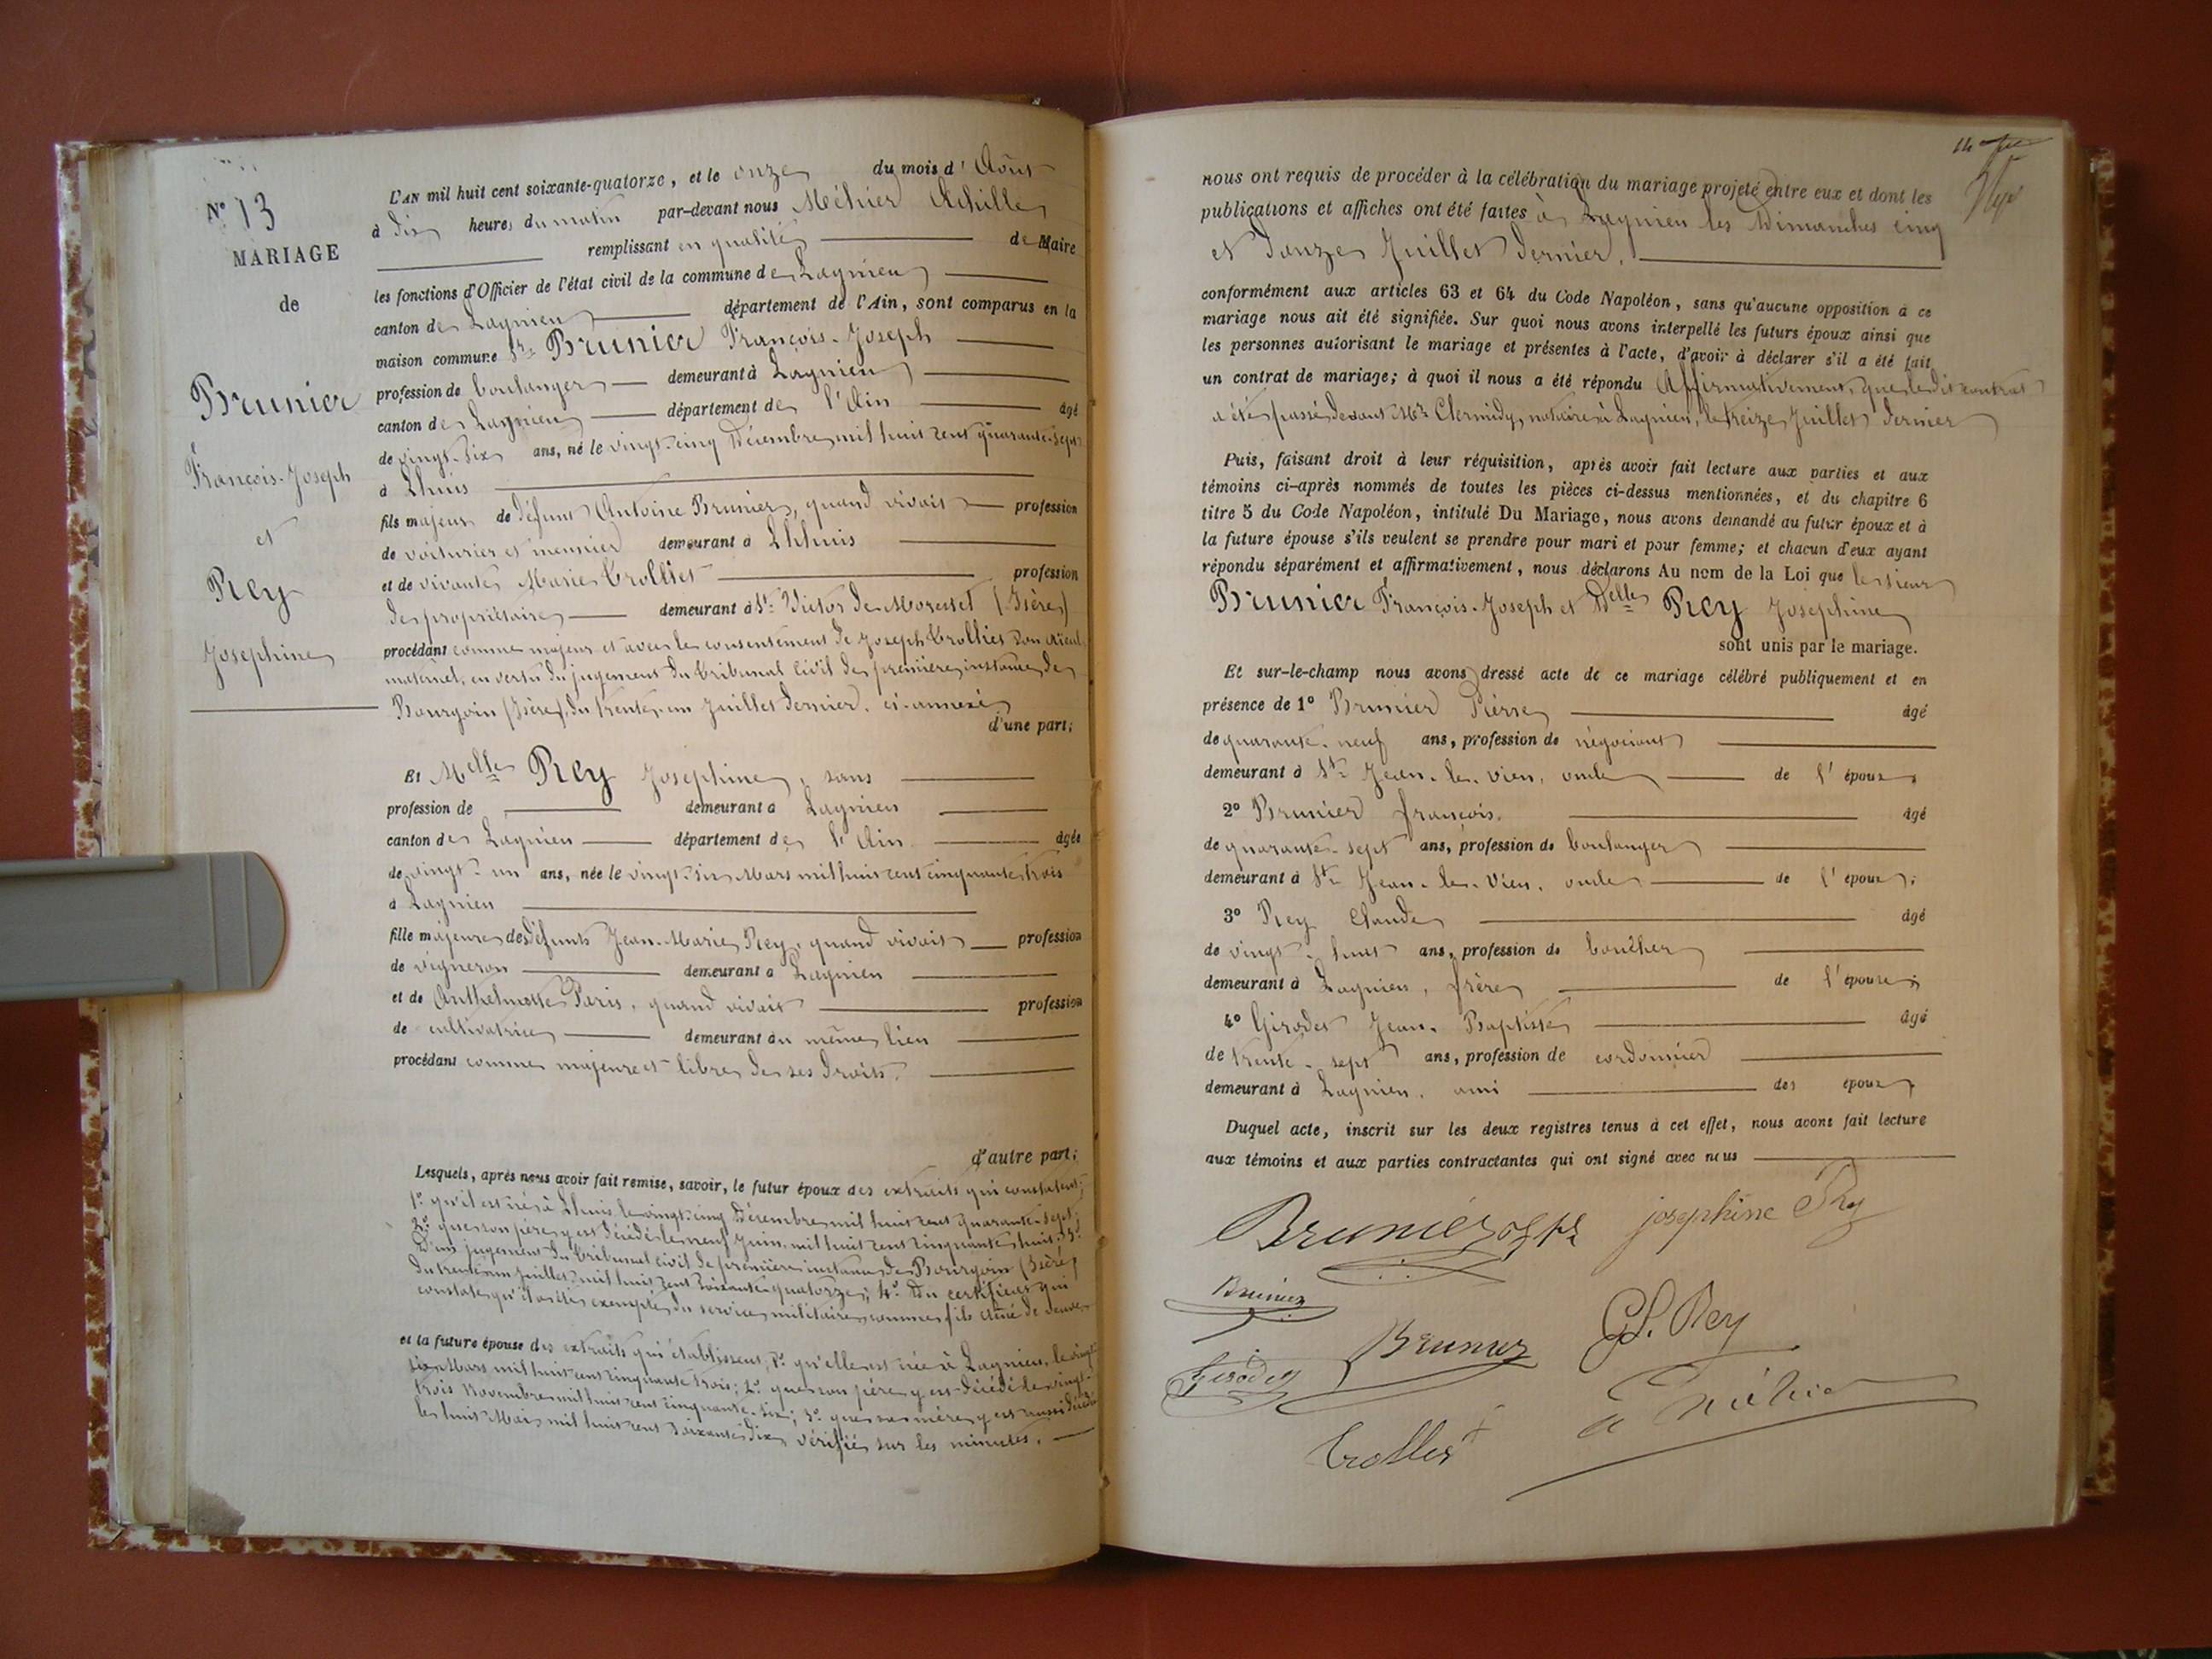 N° 13
MARIAGE
de
Brunier
François-Joseph
et
Rey
Josephine
L'AN mil huit cent soixante-quatorze, et le onze du mois d'Août
à dix heures du matin par-devant nous Méhier Achille
remplissant en qualité de Maire
les fonctions d'Officier de l'état civil de la commune de Lagnieu
canton de Lagnieu département de l'Ain, sont comparus en la
maison commune Sr. Brunier François-Joseph
profession de boulanger demeurant à Lagnieu
canton de Lagnieu département de l'Ain âgé
de vingt-six ans, né le vingt-cinq Décembre mil huit cent quarante-sept
à Lhuis
fils majeur de défunt Antoine Brunier, quand vivait profession
de voiturier et meunier demeurant à Lhuis
et de vivante Marie Crollier profession
de propriétaire demeurant à St. Victor de Morestel (Isère)
procédant comme majeur et avec le consentement de Joseph Crollier son aïeul
maternel, en vertu du jugement du tribunal civil de première instance de
Bourgoin (Isère), du trente-un Juillet dernier, ci-annexé
d'une part;
Et Melle Rey Josephine, sans
profession de demeurant à Lagnieu
canton de Lagnieu département de l'Ain âgée
de vingt-un ans, née le vingt-six Mars mil huit cent cinquante trois
à Lagnieu
fille majeure des défunts Jean-Marie Rey, quand vivait profession
de vigneron demeurant à Lagnieu
et de Anthelmette Paris, quand vivait profession
de cultivatrice demeurant au même lieu
procédant comme majeure et libre de ses droits.
d'autre part;
Lesquels, après nous avoir fait remise, savoir, le futur époux des extraits qui constatent;
1° qu'il est né à Lhuis le vingt-cinq Décembre mil huit cent quarante-sept;
2° que son père y est décédé le neuf Juin mil huit cent cinquante huit; 3°
D'un jugement du tribunal civil de première instance de Bourgoin (Isère)
du trente-un Juillet mil huit cent soixante-quatorze; 4° Du certificat qui
constate qu'il a été exempté du service militaire, comme fils aîné de veuve
et la future épouse des extraits qui établissent, 1° qu'elle est née à Lagnieu, le vingt-
six Mars mil huit cent cinquante trois; 2° que son père y est décédé le vingt-
trois Novembre mil huit cent cinquante-six; 3° que sa mère y est aussi décédée
le huit Mai mil huit cent soixante dix, vérifié sur les minutes.
nous ont requis de procéder à la célébration du mariage projeté entre eux et dont les
publications et affiches ont été faites à Lagnieu les Dimanches cinq
et douze Juillet dernier.
conformément aux articles 63 et 64 du Code Napoléon, sans qu'aucune opposition à ce
mariage nous ait été signifiée. Sur quoi nous avons interpellé les futurs époux ainsi que
les personnes autorisant le mariage et présentes à l'acte, d'avoir à déclarer s'il a été fait
un contrat de mariage; à quoi il nous a été répondu Affirmativement, que ledit contrat
a été passé devant Me. Clermidy, notaire à Lagnieu, le treize Juillet dernier
Puis, faisant droit à leur réquisition, après avoir fait lecture aux parties et aux
témoins ci-après nommés de toutes les pièces ci-dessus mentionnées, et du chapitre 6
titre 5 du Code Napoléon, intitulé Du Mariage, nous avons demandé au futur époux et à
la future épouse s'ils veulent se prendre pour mari et pour femme; et chacun d'eux ayant
répondu séparément et affirmativement, nous déclarons Au nom de la Loi que le sieur
Brunier François-Joseph et Delle Rey Josephine
sont unis par le mariage.
Et sur-le-champ nous avons dressé acte de ce mariage célébré publiquement et en
présence de 1° Brunier Pierre âgé
de quarante-neuf ans, profession de négociant
demeurant à St. Jean-le-vieu, oncle de l'époux,
2° Brunier françois, âgé
de quarante-sept ans, profession de boulanger
demeurant à St. Jean-le-Vieu, oncle de l'époux;
3° Rey Claude âgé
de vingt-huit ans, profession de boucher
demeurant à Lagnieu, frère de l'épouse;
4° Girodet Jean-Baptiste âgé
de trente-sept ans, profession de cordonnier
demeurant à Lagnieu, ami des époux,
Duquel acte, inscrit sur les deux registres tenus à cet effet, nous avons fait lecture
aux témoins et aux parties contractantes qui ont signé avec nous
Brunier josephine Rey
Brunier
Brunier Cl. Rey
Girodet
Crollier
A Méhier